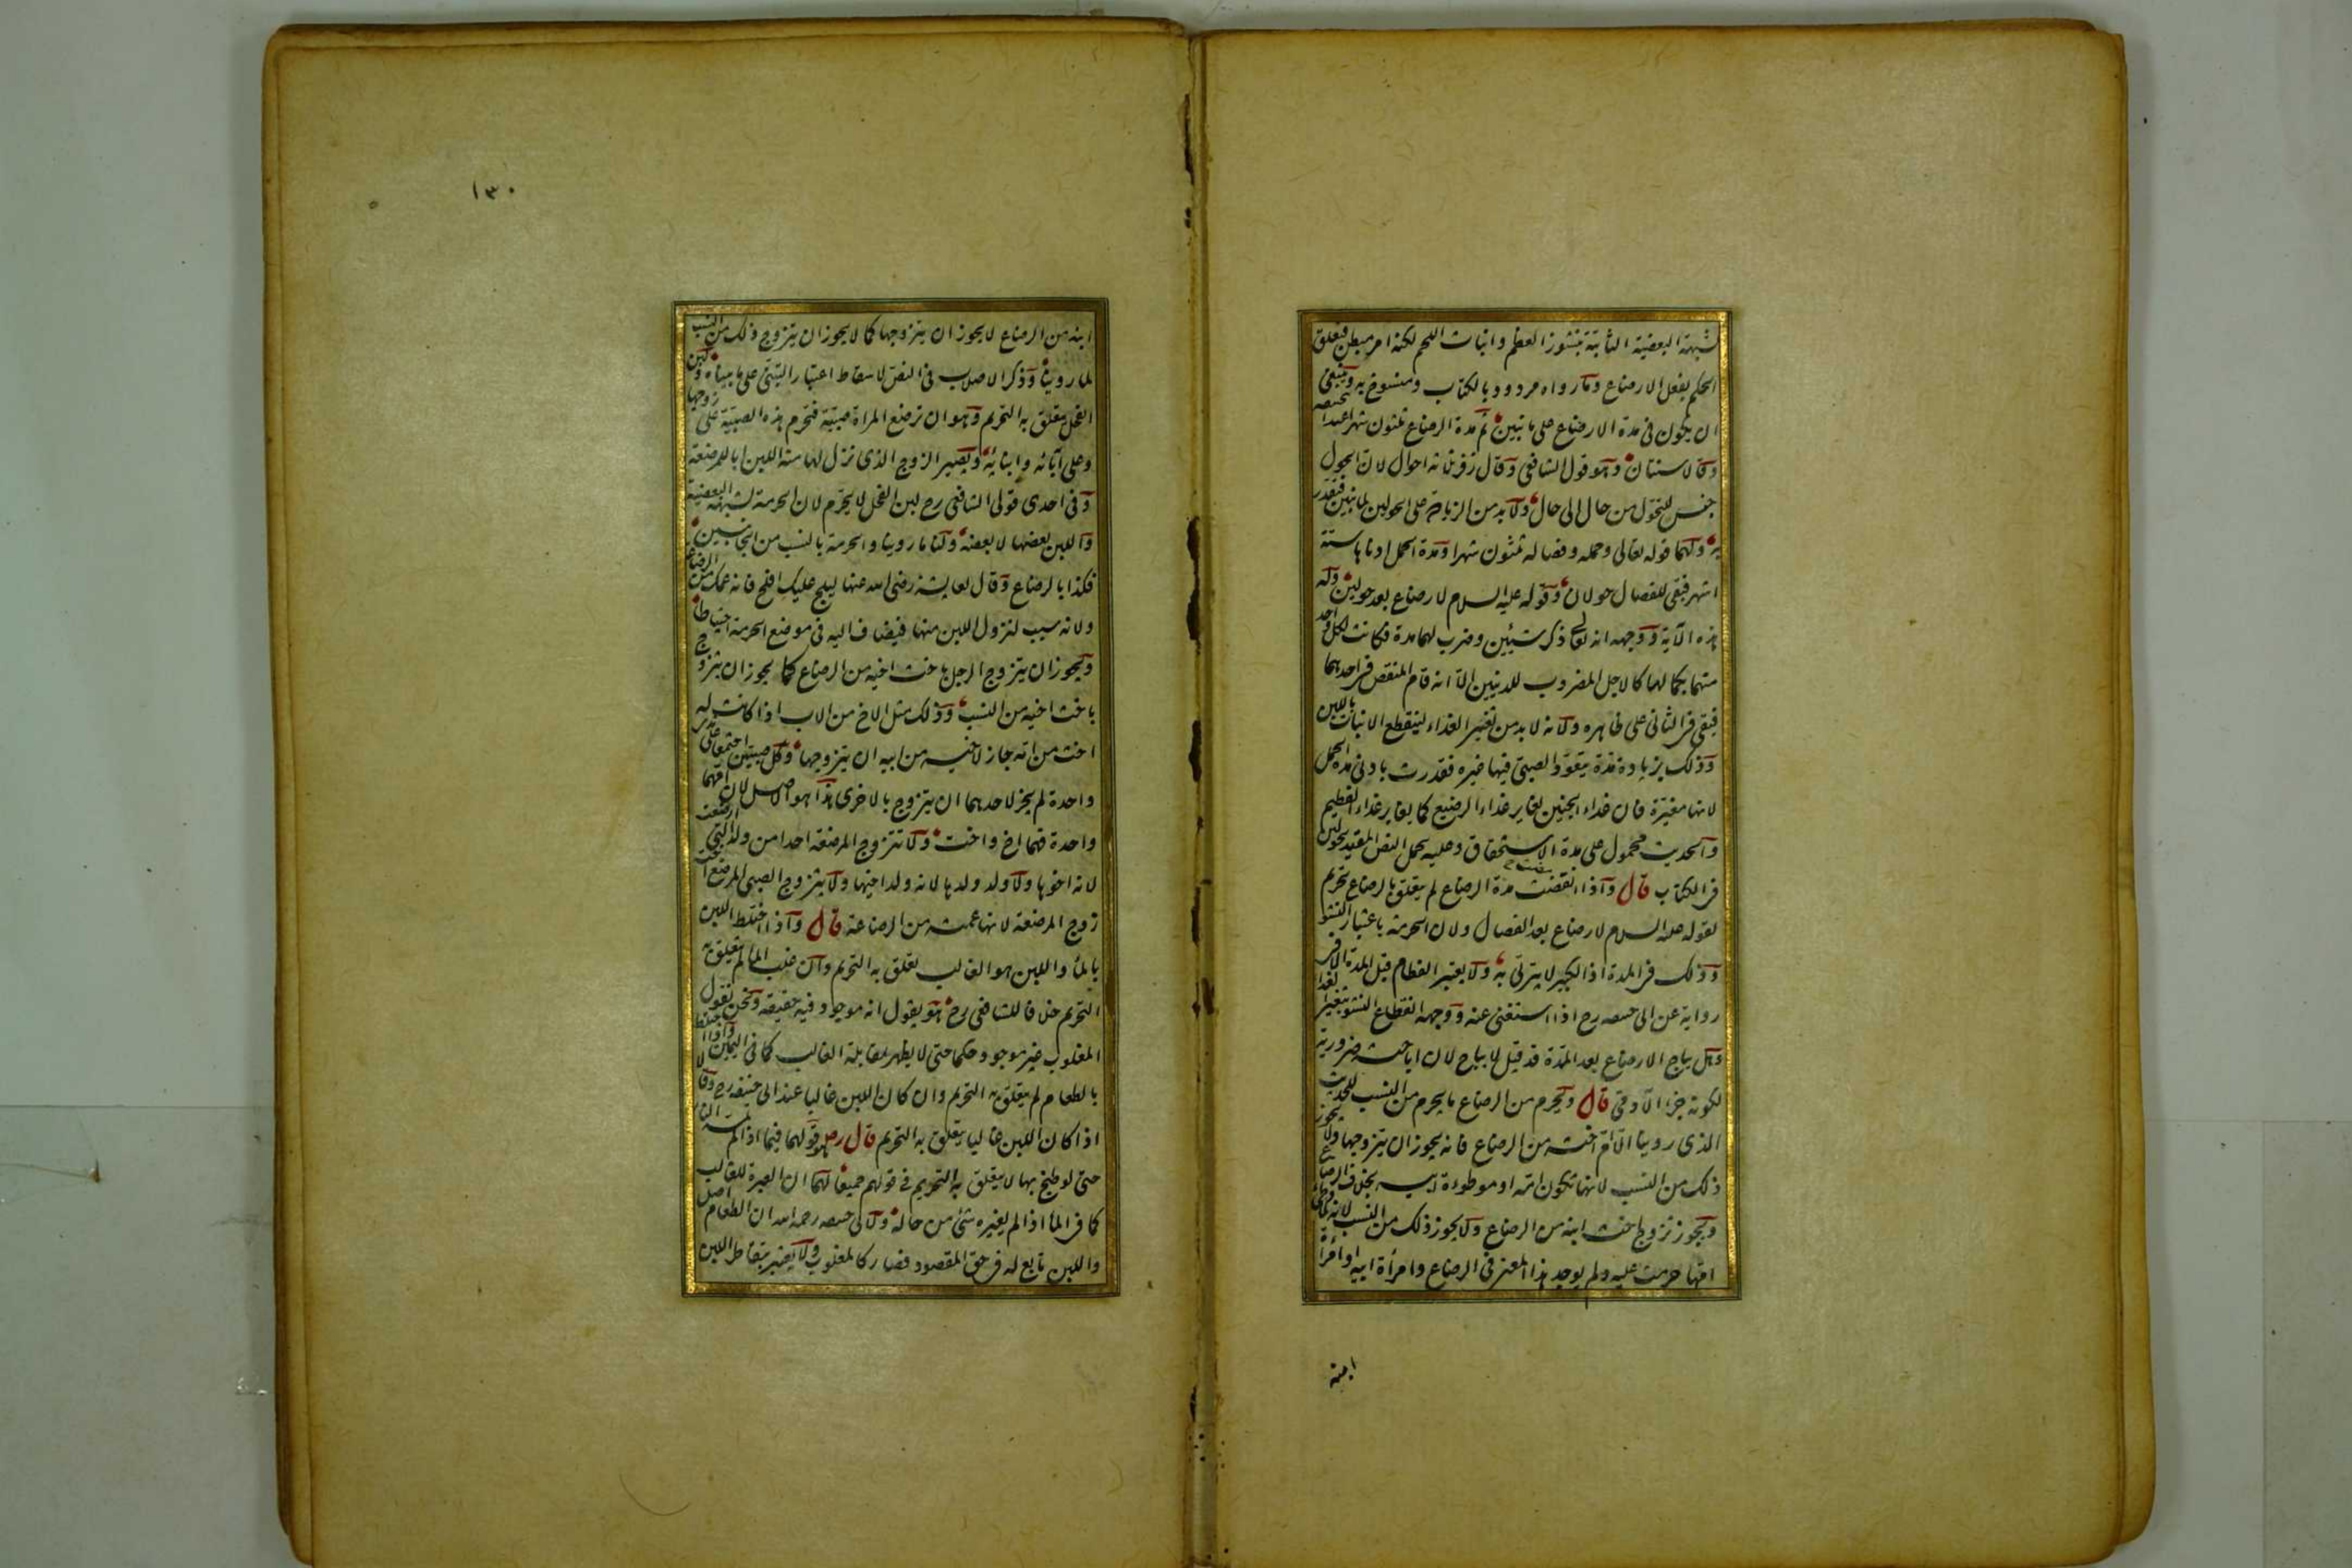 شبهة البعضية الثابتة بنشوز العظم وانبات اللحم لكنه امر مبطن فتعلق
الحكم بفعل الارضاع وما رواه مردود بالكتاب ومنسوخ به وينبغى
ان يكون فى مدة الارضاع على ما نبين ثم مدة الرضاع ثلثون شهرا عند ابى حنيفه
وقالا سنتان وهو قول الشافعى وقال زفر ثلثة احوال لان الحول
حسن للتحول من حال الى حال ولا بد من الزيادة على الحولين لما نبين فتقدر
به ولهما قوله تعالى وحمله وفصاله ثلثون شهرا ومدة الحمل ادناها ستة
اشهر فبقى للفصال حولان وقوله عليه السلام لا رضاع بعد حولين وله
هذه الآية ووجهه انه تعالى ذكر شيئين وضرب لهما مدة فكانت لكل واحد
منهما بكمالها كالاجل المضروب للدينين الا انه قام المنقص فى احدهما
فبقى فى الثانى على ظاهره ولانه لا بد من تغير الغذاء لينقطع الانبات باللبن
وذلك بزيادة مدة يتعود الصبى فيها غيره فقدرت بادنى مدة الحمل
لانها مغيرة فان غذاء الجنين يغاير غذاء الرضيع كما يغاير غذاء الفطيم
والحديث محمول على مدة الاستحقاق وعليه يحمل النص المقيد بحولين
فى الكتاب قال واذا انقضت مدة الرضاع لم يتعلق بالرضاع تحريم
لقوله عليه السلام لا رضاع بعد الفصال ولان الحرمة باعتبار النشو
وذلك فى المدة اذ الكبير لا يتربى به ولا يعتبر الفطام قبل المدة الا فى
رواية عن ابى حنيفه رح اذا استغنى عنه ووجهه انقطاع النشو بتغير الغذاء
وهل يباح الارضاع بعد المدة قد قيل لا يباح لان اباحته ضرورية
لكونه جزء الآدمى قال ويحرم من الرضاع ما يحرم من النسب للحديث
الذى روينا الا ام اخته من الرضاع فانه يجوز ان يتزوجها ولا يجوز
ذلك من النسب لانها تكون امه او موطوءة ابيه بخلاف الرضاع
ويجوز تزوج اخت ابنه من الرضاع ولا يجوز ذلك من النسب لانه لما وطئ
امها حرمت عليه ولم يوجد هذا المعنى فى الرضاع وامرأة ابيه او امرأة
ابنه
١٣٠
ابنه من الرضاع لا يجوز ان يتزوجها كما لا يجوز ان يتزوج ذلك من النسب
لما روينا وذكر الاصلاب فى النص لاسقاط اعتبار التبنى على ما بيناه ولبن
الفحل يتعلق به التحريم وهو ان ترضع المراة صبية فتحرم هذه الصبية على زوجها
وعلى آبائه وابنائه ويصير الزوج الذى نزل لها منه اللبن ابا للمرضعة
وفى احدى قولى الشافعى رح لبن الفحل لا يحرم لان الحرمة لشبهة البعضية
واللبن بعضها لا بعضه ولنا ما روينا والحرمة بالنسب من الجانبين
فكذا بالرضاع وقال لعايشة رضى الله عنها ليلج عليك افلح فانه عمك من الرضاعة
ولانه سبب لنزول اللبن منها فيضاف اليه فى موضع الحرمة احتياطا
ويجوز ان يتزوج الرجل باخت اخيه من الرضاع كما يجوز ان يتزوج
باخت اخيه من النسب وذلك مثل الاخ من الاب اذا كانت له
اخت من امه جاز لاخيه من ابيه ان يتزوجها وكل صبيين اجتمعا على ثدى
واحدة لم يجز لاحدهما ان يتزوج بالاخرى هذا هو الاصل لان امهما
واحدة فهما اخ واخت ولا تتزوج المرضعة احدا من ولد التى ارضعت
لانه اخوها ولا ولد ولدها لانه ولد اخيها ولا يتزوج الصبى المرضع اخت
زوج المرضعة لانها عمته من الرضاعة قال واذا اختلط اللبن
بالماء واللبن هو الغالب تعلق به التحريم وان غلب الماء لم يتعلق به
التحريم خلافا للشافعى رح هو يقول انه موجود فيه حقيقة ونحن نقول
المغلوب غير موجود حكما حتى لا يظهر بمقابلة الغالب كما فى اليمين واذا اختلط
بالطعام لم يتعلق به التحريم وان كان اللبن غالبا عند ابى حنيفه رح وقالا
اذا كان اللبن غالبا يتعلق به التحريم قال رض قولهما فيما اذا لم تمسه النار
حتى لو طبخ بها لا يتعلق به التحريم فى قولهم جميعا لهما ان العبرة للغالب
كما فى الماء اذا لم يغيره شئ من حاله ولابى حنيفه رحمه الله ان الطعام اصل
واللبن تابع له فى حق المقصود فصار كالمغلوب ولا يعتبر بتقاطر اللبن